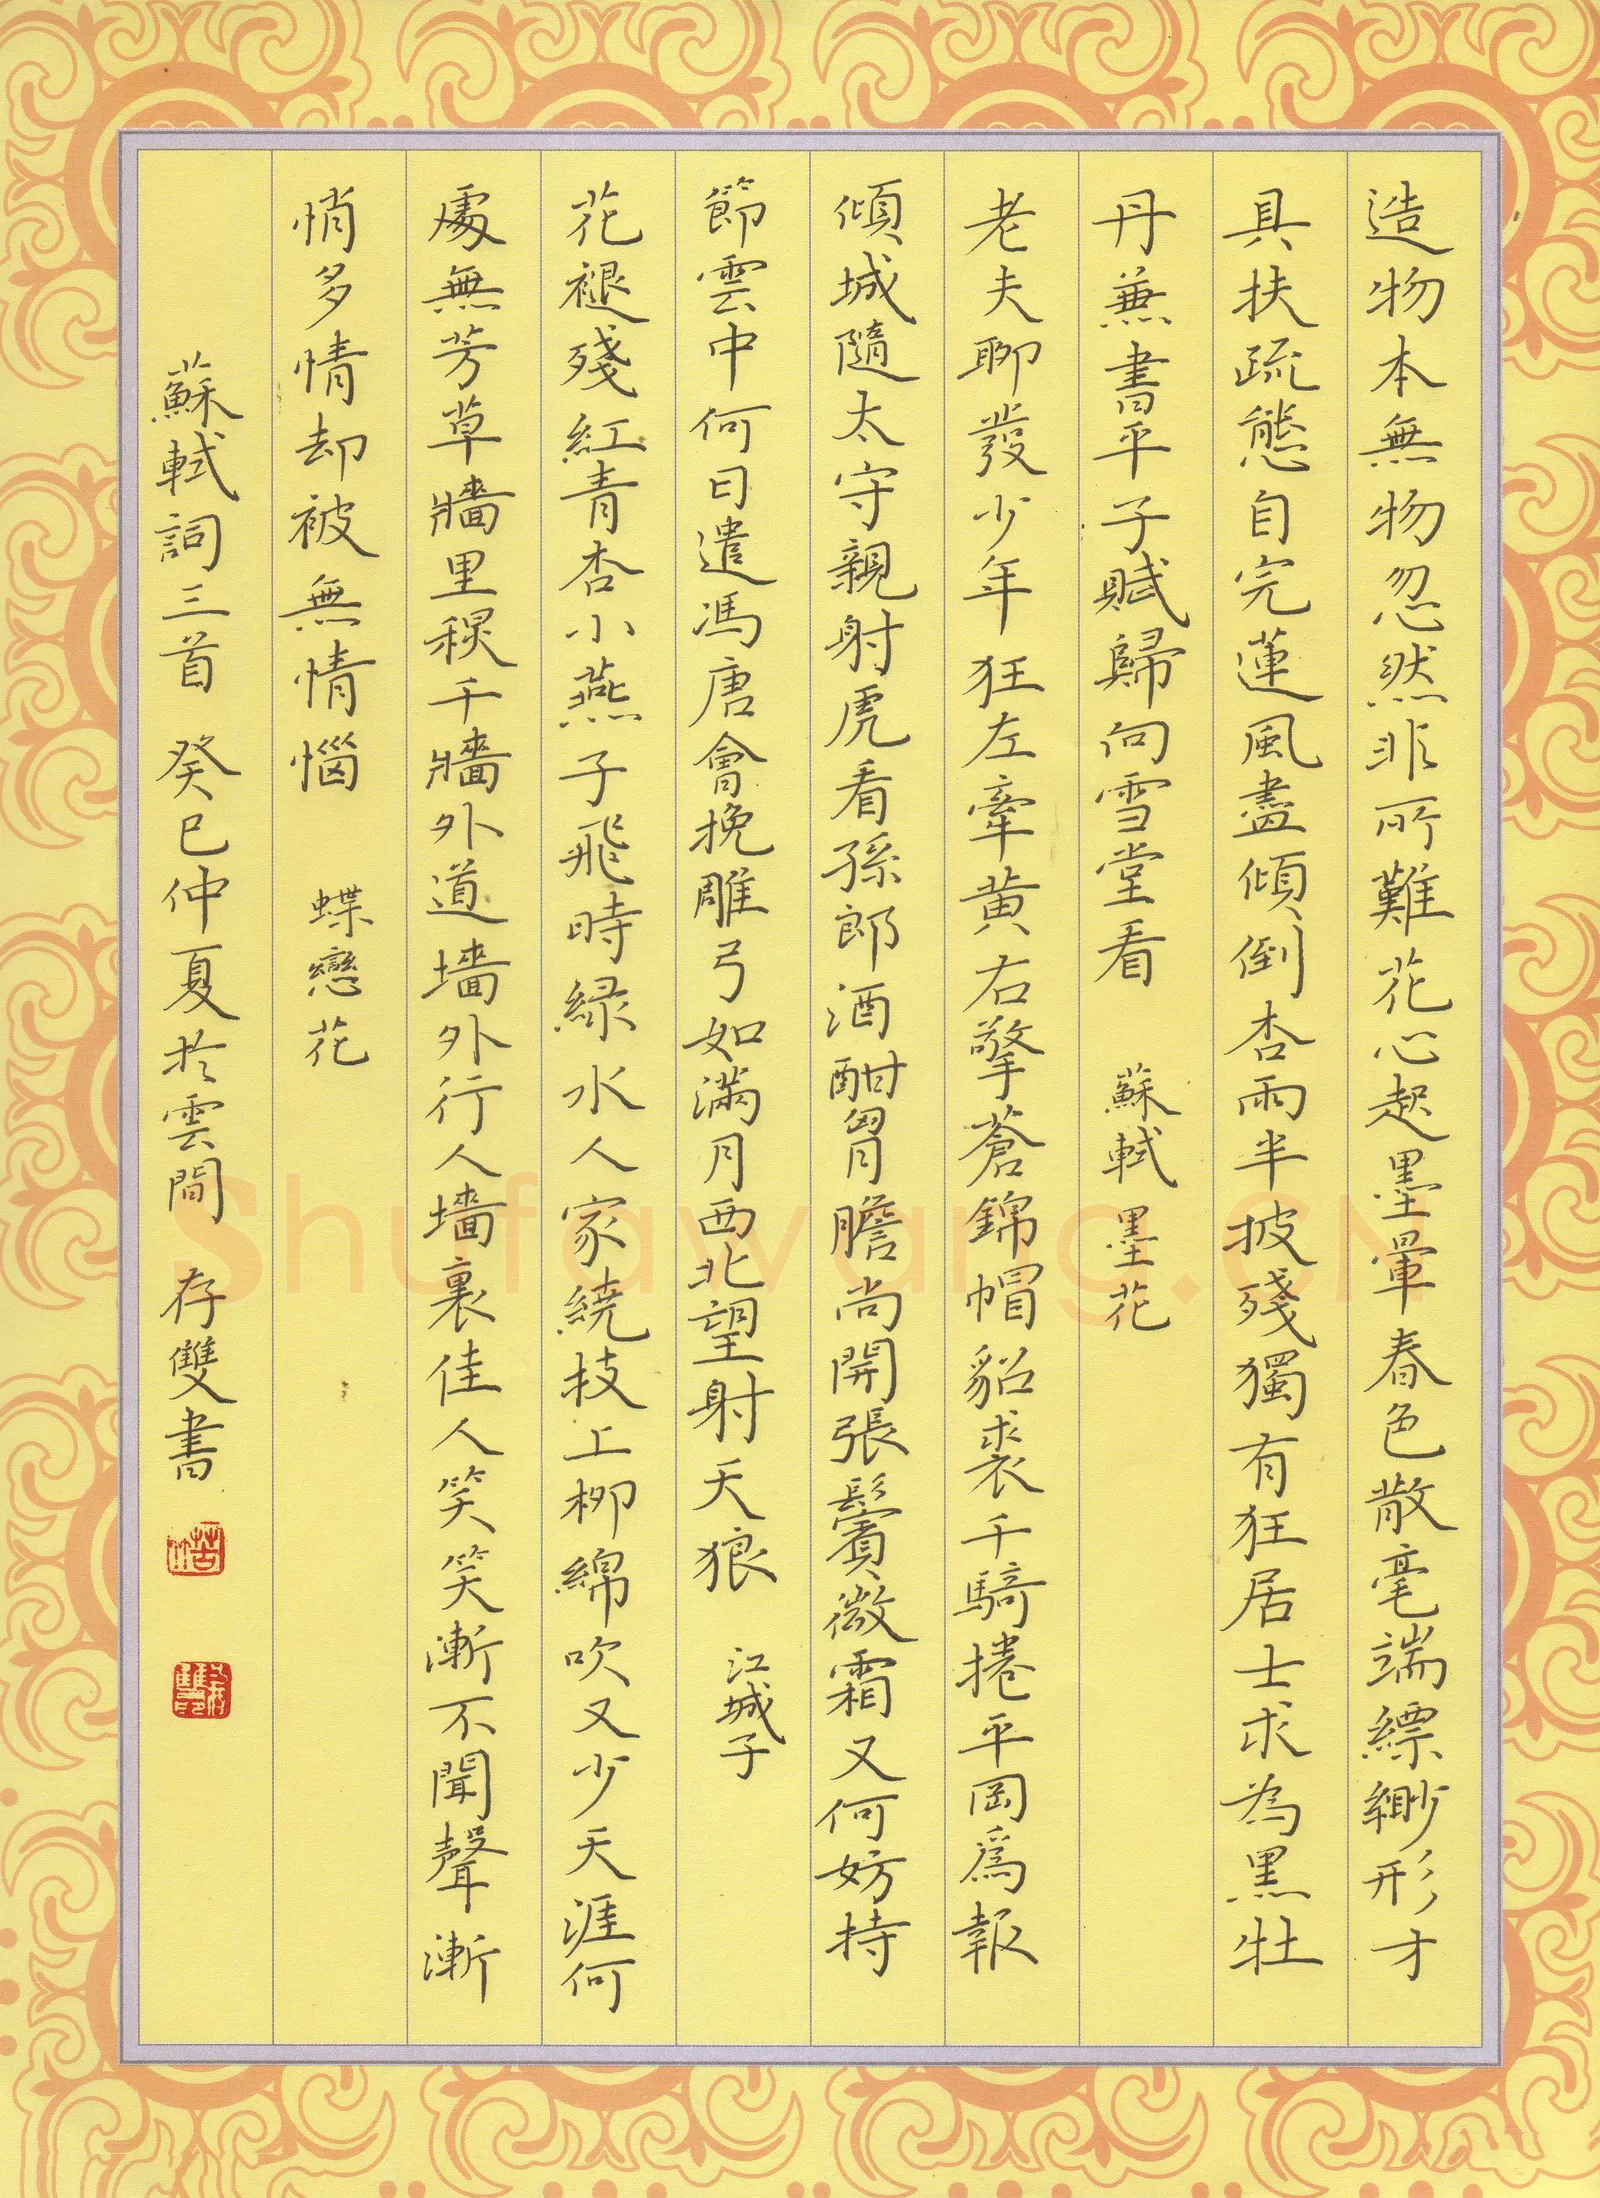 造物本無物忽然非所難花心起墨暈春色散毫端縹緲形才
具扶疏態自完蓮風盡傾倒杏雨半披殘獨有狂居士求為黑牡
丹兼書平子賦歸向雪堂看 蘇軾 墨花
老夫聊發少年狂左牽黃右擎蒼錦帽貂裘千騎捲平岡爲報
傾城隨太守親射虎看孫郎酒酣胷膽尚開張鬢微霜又何妨持
節雲中何日遣馮唐會挽雕弓如滿月西北望射天狼 江城子
花褪殘紅青杏小燕子飛時緑水人家繞技上柳綿吹又少天涯何
處無芳草牆里稬千牆外道墻外行人墻裏佳人笑笑漸不聞聲漸
悄多情却被無情惱 蝶戀花
蘇軾詞三首 癸巳仲夏於雲間 存雙書
Shufawang.CN